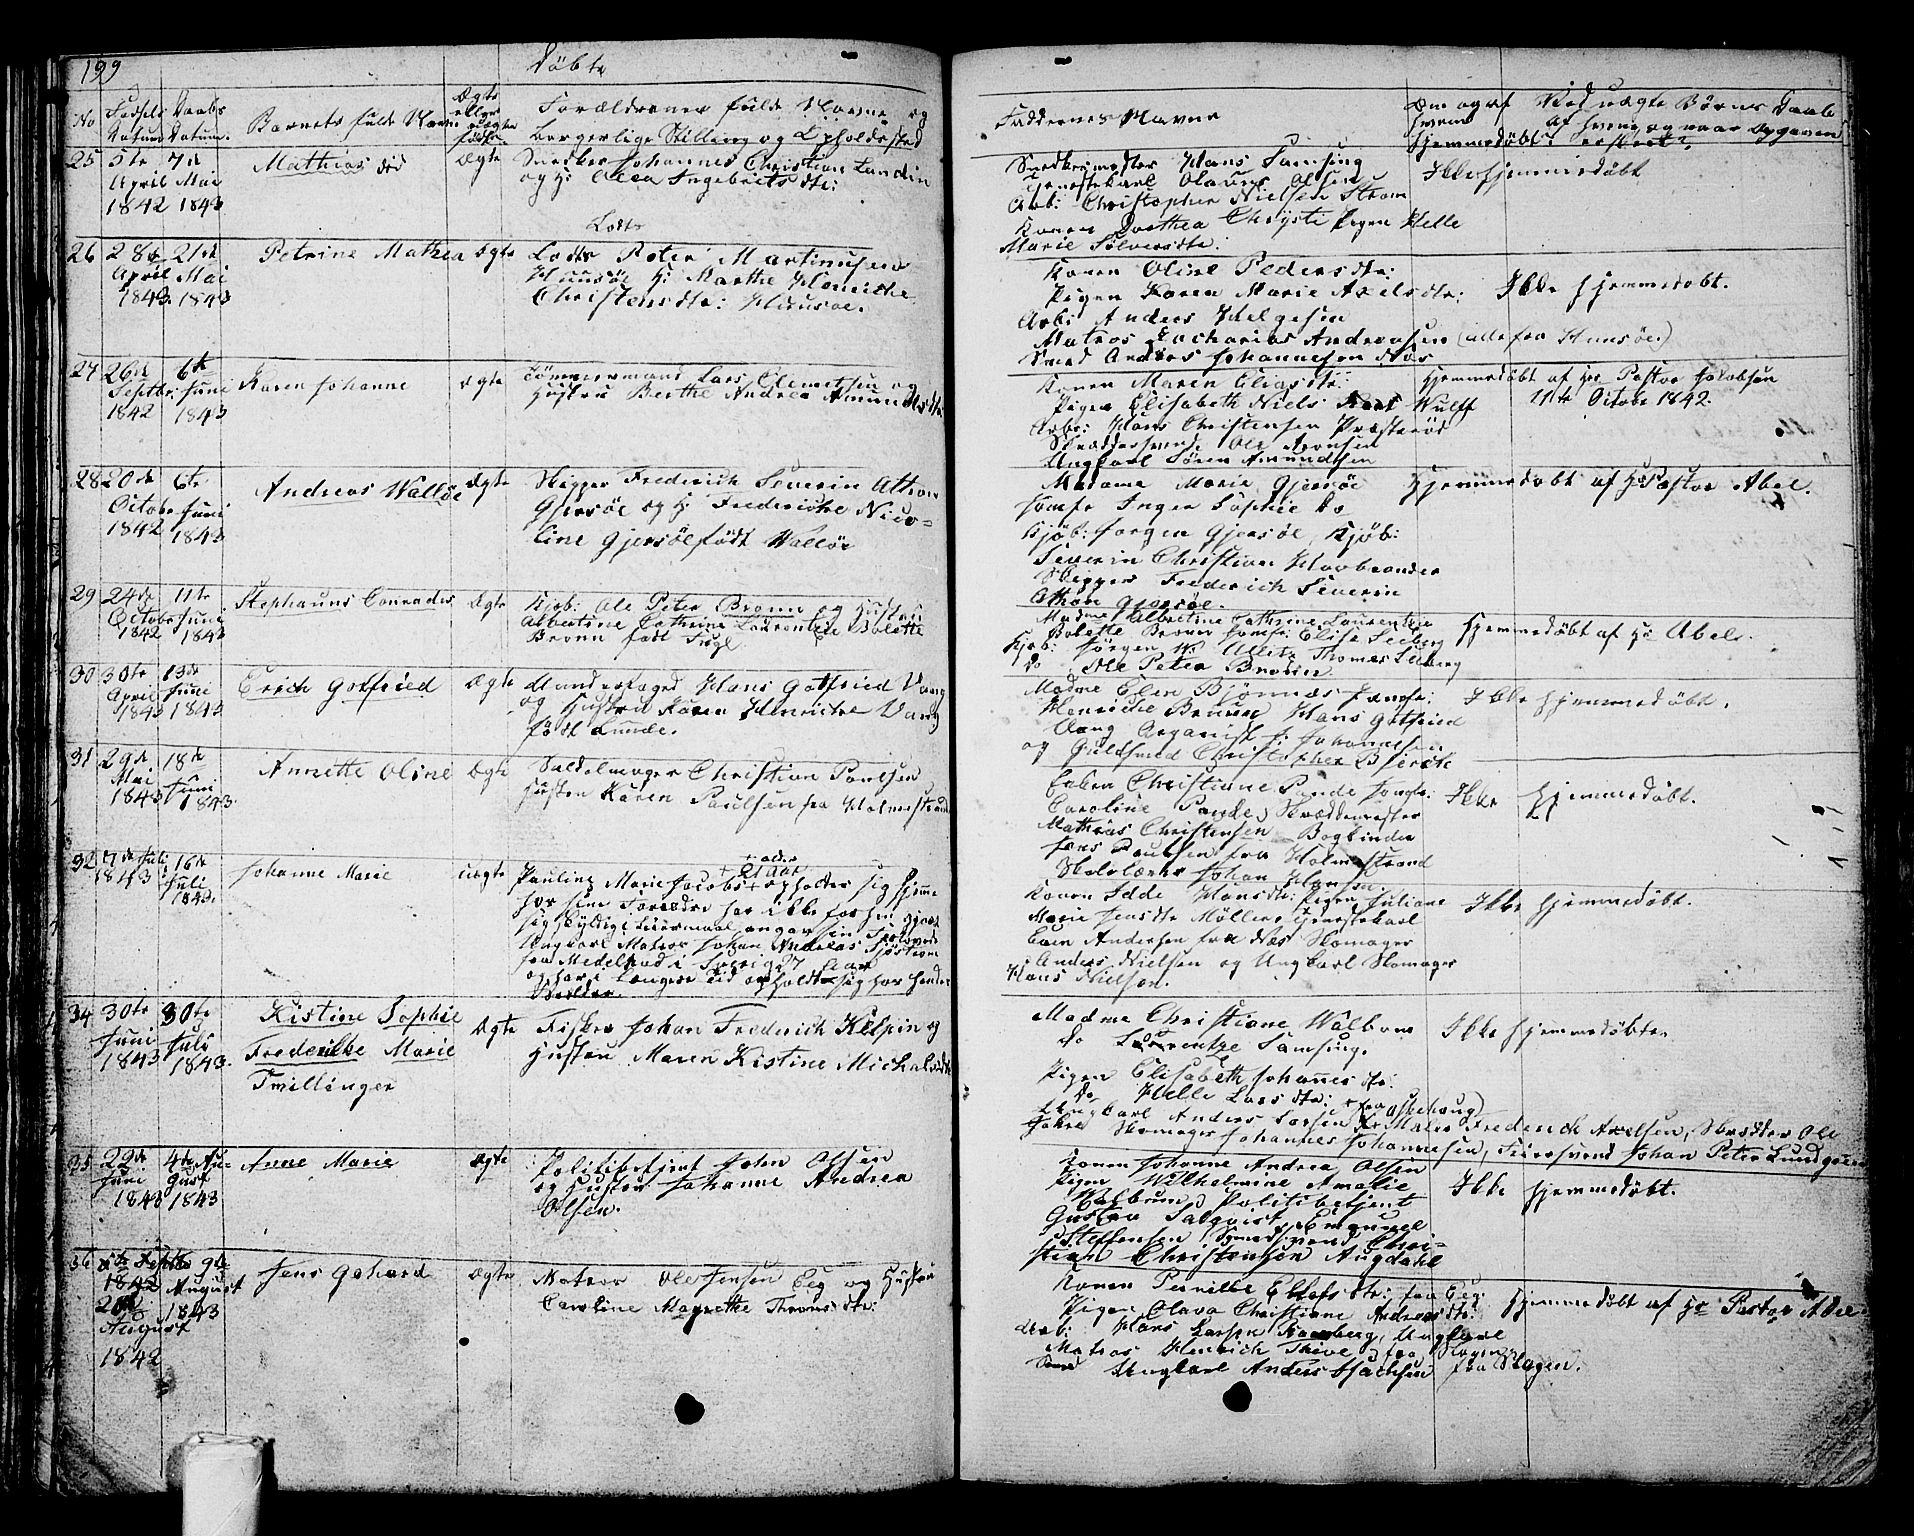 199
Døbte
No
Fødsels Datum
Daabs Datum.
Barnets fulde Navn
Ægte eller uægte født
Forældrenes fulde Navne og
borgerlige Stilling og Opholdssted
Faddernes Navne
Om og af hvem hjemmedøbt?
Ved uægte Børns Daab
25 5te April 1842
7de Mai 1843
Mathias
Ægte
Snedker Johannes Christian Lundin
og H: Olea Ingebrets dtr:
Snedkermester Hans Samsing
Tjenestekarl Olaus Olsen
Arb: Christopher Nielsen Strøm
Konen Dorthea Chrysti Pigen Helle
Marie Sølversdtr:
Ikke hjemmedøbt
26 28de April 1843
21de Mai 1843
Petrine Mathea
Ægte
Lods
Lods Peter Martinusen
Huusøe H: Marthe Henriche
Christensdtr: Huusøe.
Konen Oline Pedersdtr:
Pigen Karen Marie Axelsdtr:
Arb: Anders Helgesen
Matros Zacharias Andreasen (alle fra Huusøe.)
Smed Anders Johannesen Næs
Ikke hjemmedøbt.
27 26de Septbr: 1842
6te Juni 1843
Karen Johanne
Ægte
Tømmermand Lars Clemetsen og
Hustru Berthe Andrea Amundsdtr
Konen Maren Eliasdtr:
Pigen Elisabeth Niels Wulff
Arb: Hans Christensen Præsterød
Skræddersvend Ole Aronsen
Ungkarl Søren Amundsen
Hjemmedøbt af Hr Pastor Jakobsen
11te October 1842.
28 20de Octobr 1842
6te Juni 1843
Andreas Walløe
Ægte
Skipper Frederich Severin Athon
Gjersøe og H: Frederikke Nico-
line Gjersøe født Walløe
Madame Marie Gjersøe
Jomfr Inger Sophie Do
Kjøb: Jørgen Gjersøe, Kjøb:
Severin Christian Havbrander
Skipper Frederich Severin
Athon Gjersøe.
Hjemmedøbt af Hr Pastor Abel.
29 24de Octobr 1842
11te Juni 1843
Stephanus Conrades
Ægte
Kjøb: Ole Peter Bronn og Hustru
Albertine Cathrine Laurentze Bolette
Bronn født Fugl
Madme Albertine Cathrine Laurentze
Bolette Bronn Jomfr: Elise Seeberg
Kjøb: Jørgen H: Thomas Seeberg
Do Ole Peter Bronn.
Hjemmedøbt af Hr Abel.
30 30te April 1843
13de Juni 1843
Erich Gotfried
Ægte
Hans Gotfried Vang
og Hustru Karen Henrikke Vang
født Lunde.
Madme Elen Bjørnæs Jomfr:
Henriche Bruun Hans Gotfried
Vang Organist J: Johannesen
og Guldsmed Christopher Bjerck
Ikke hjemmedøbt.
31 29de Mai 1843
18de Juni 1843.
Annette Oline
Ægte
Sadelmager Christian Poulsen
Hustru Karen Paulsen fra Holmestrand
Enken Christiane Pande Jomfr:
Caroline Pande, Skræddermester
Mathias Christensen Bogbinder
Jens Paulsen fra Holmestrand
Skolelærer Johan Hansen.
Ikke hjemmedøbt.
32 7de Juli 1843
16de Juli 1843.
Johanne Marie
uægte
Pauline Marie Jacobs + opholder sig hjemme
+ alder 21 aar
hos sine Forældre har ikke før hen gjort
sig skyldig i Leiermaal angav sin
Ungkarl Matros Johan Andreas Sjøstrøm
fra Medelpad i Sverige 27 aar
og har i længere Tid opholdt sig hos hendes
Forældre.
Konen Edde Hansdtr: Pigen Juliane
Marie Jensdtr Møller, Tjenestekarl
Even Andersen fra Næs Skomager
Anders Nielsen og Ungkarl Skomager
Hans Nielsen.
Ikke hjemmedøbt.
34 30te Juni 1843
30te Juli 1843.
Kistine Sophie
Frederikke Marie
Tvillinger
Ægte
Fisker Johan Frederich Kelpin og
Hustru Maren Kistine Michelsdtr
Madme Christiane Walbom
Do Laurentze Samsing.
Pigen Elisabeth Johannesdtr:
Do Helle Larsdtr:
Ungkarl Anders Larsen (fra Askehaug)
Frederich Axelsen, Skrædder Ole
Skomager Johannes Johannesen, Feiersvend Johan Peter Lundgreen
Ikke hjemmedøbte
35 29de Juni 1843
4de August 1843
Anne Marie
Ægte
Politibetjent John Olsen
og Hustru Johanne Andrea
Olsen.
Konen Johanne Andrea Olsen
Pigen Wilhelmine Amalie
Walbrun, Politibetjent
Gustav Salqvist Emanuel
Steffensen Smedsvend Chri-
stian Christensen Augdahl
Ikke hjemmedøbt.
36
August 1842
9de August 1843
Jens Gohard
Ægte
Matros Ole Jensen Eeg og Hustru
Caroline Magrethe Thomsdtr:
Konen Pernille Ellefsdtr: fra Eeg.
Pigen Olava Christiane Andreasdtr:
Arb: Hans Larsen Ramberg, Ungkarl
Matros Henrich Thive, fra Slagen
Smed Ungkarl Anders Isachsen fra Slagen.
Hjemmedøbt af Hr Pastor Abel